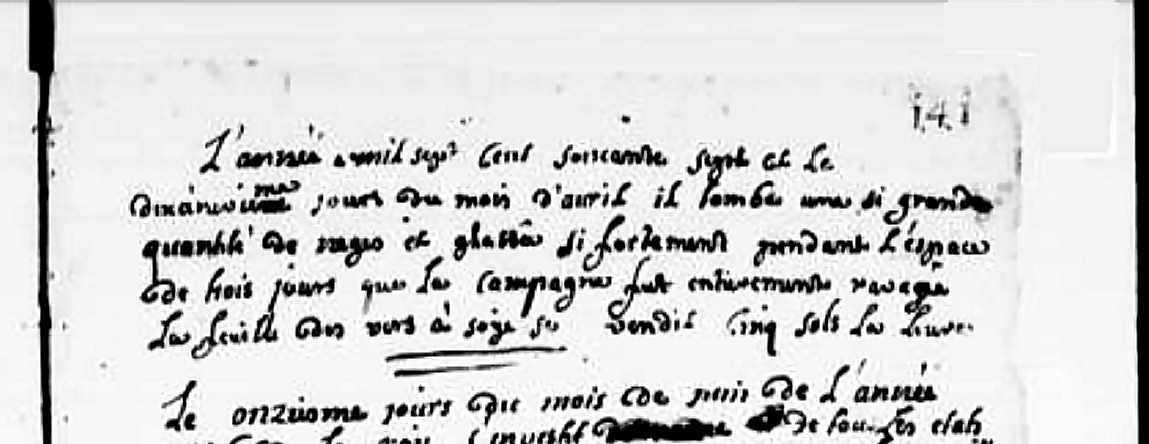 141
L'année mil sept Cent soixante sept et Le
dixneuvieme jours du mois d'avril il tomba une si grande
quantité de neges et glassa si fortement pendant L'espace
de trois jours que La Campagne fut entierement ravagée
La feuille des vers à soye se vendit Cinq sols La Livre.
Le onzieme jours du mois de juin de L'année
de tou. Les etats